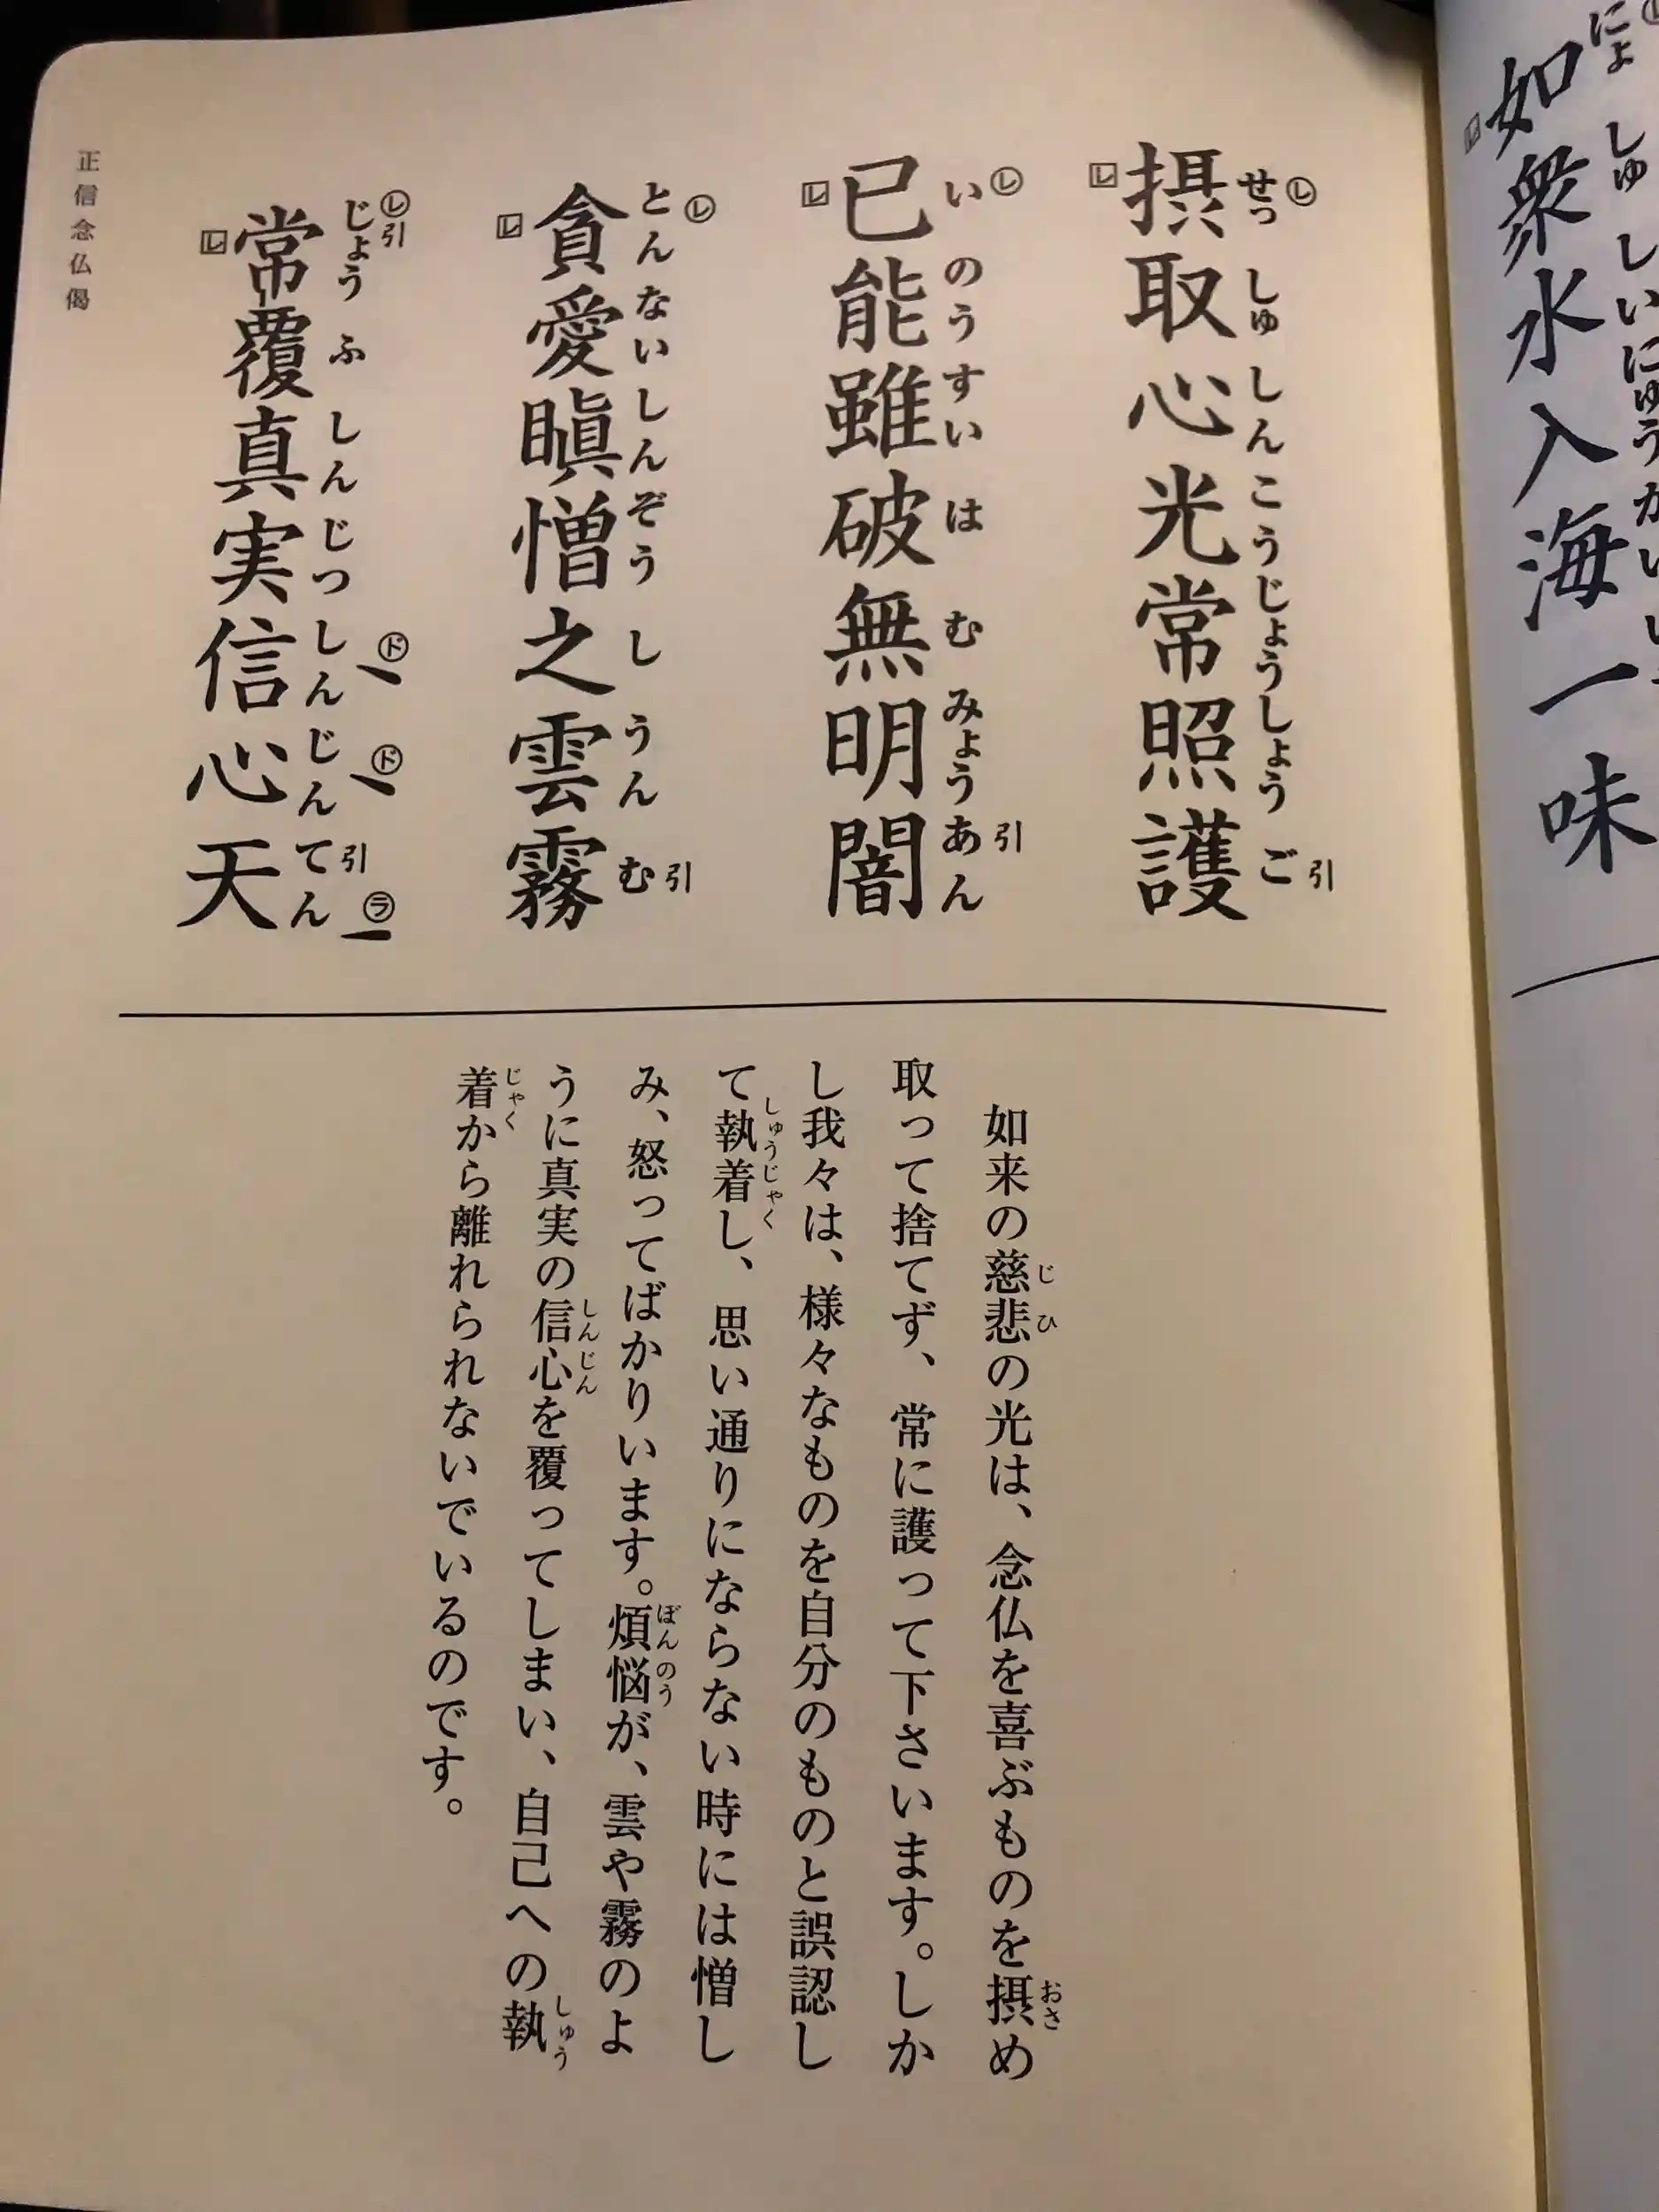 如衆水入海一味
にょしゅしいにゅうかい
摂取心光常照護
せっしゅしんこうじょうしょうご引
已能雖破無明闇
いのうすいはむみょうあん引
貪愛瞋憎之雲霧
とんないしんぞうしうんむ引
常覆真実信心天
じょうふしんじつしんじんてん引
正信念仏偈
如来の慈悲の光は、念仏を喜ぶものを摂め
取って捨てず、常に護って下さいます。しか
し我々は、様々なものを自分のものと誤認し
て執着し、思い通りにならない時には憎し
み、怒ってばかりいます。煩悩が、雲や霧のよ
うに真実の信心を覆ってしまい、自己への執
着から離れられないでいるのです。